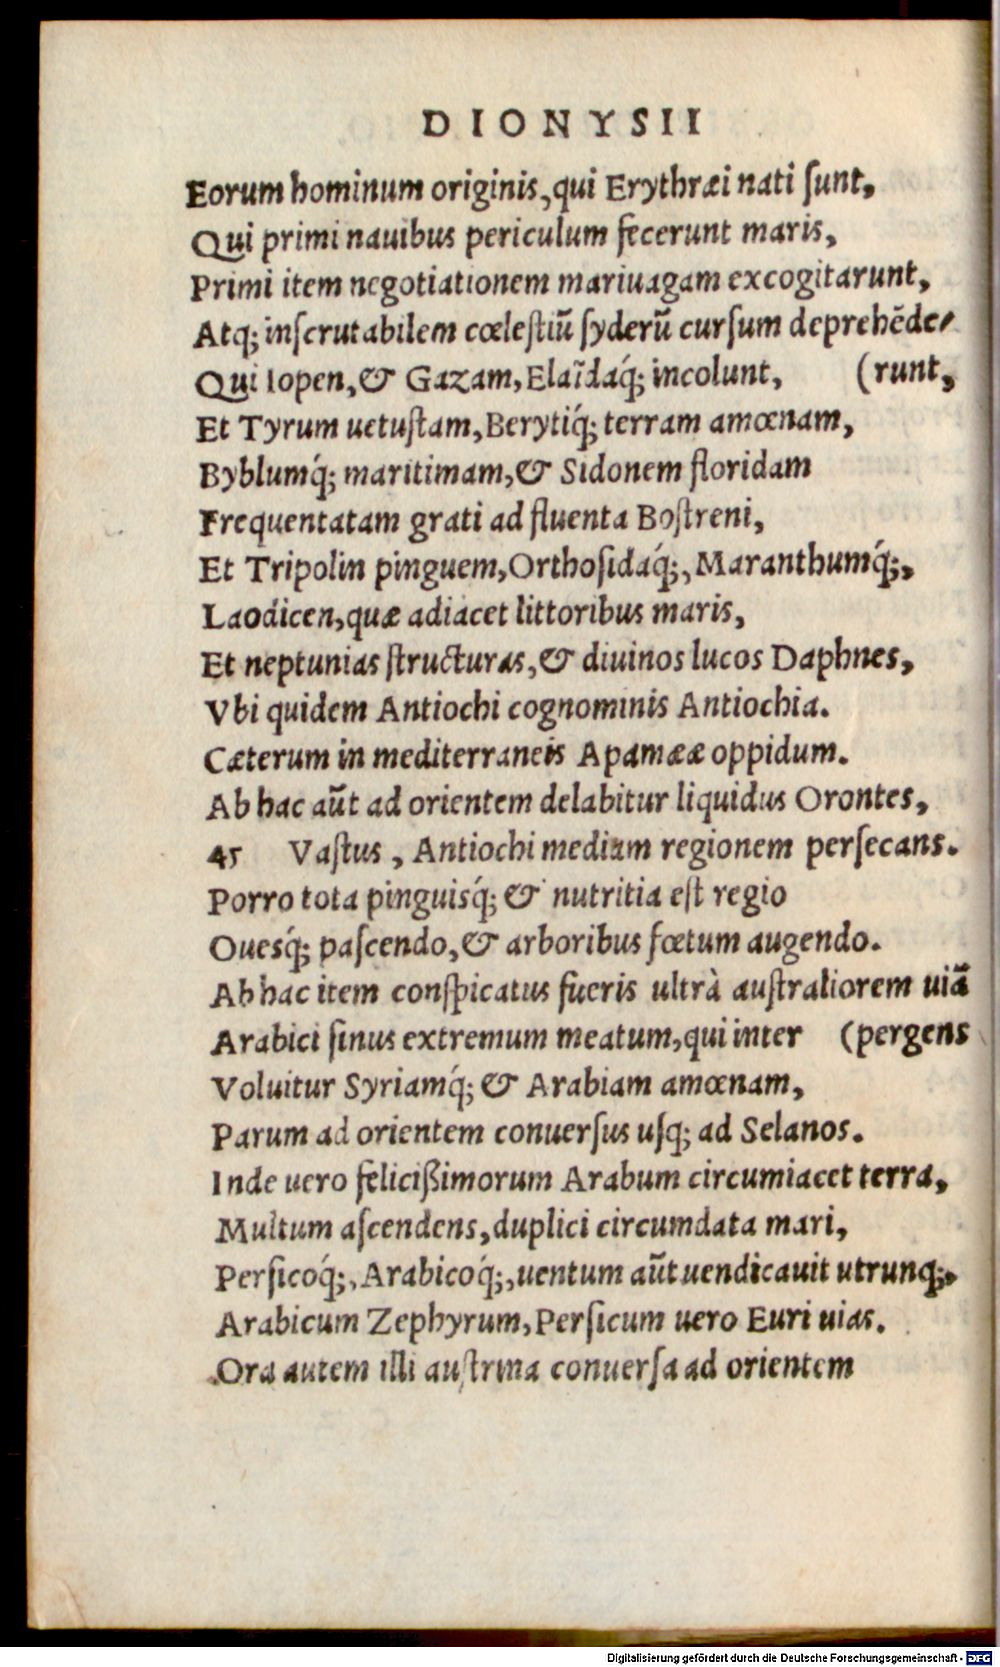 DIONYSII
Eorum hominum originis, qui Erythræi nati sunt,
Qui primi nauibus periculum fecerunt maris,
Primi item negotiationem mariuagam excogitarunt,
Atq; inscrutabilem cœlestiũ syderũ cursum deprehẽde-
Qui Iopen, & Gazam, Elaĩdáq; incolunt, (runt,
Et Tyrum uetustam, Berytíq; terram amœnam,
Byblumq́; maritimam, & Sidonem floridam
Frequentatam grati ad fluenta Bostreni,
Et Tripolin pinguem, Orthosidaq́;, Maranthumq́;,
Laodicen, quæ adiacet littoribus maris,
Et neptunias structuras, & diuinos lucos Daphnes,
Vbi quidem Antiochi cognominis Antiochia.
Cæterum in mediterraneis Apamææ oppidum.
Ab hac aũt ad orientem delabitur liquidus Orontes,
45 Vastus, Antiochi mediam regionem persecans.
Porro tota pinguisq́; & nutritia est regio
Ouesq́; pascendo, & arboribus fœtum augendo.
Ab hac item conspicatus fueris ultrà australiorem uiã
Arabici sinus extremum meatum, qui inter (pergens
Voluitur Syriamq́; & Arabiam amœnam,
Parum ad orientem conuersus usq; ad Selanos.
Inde uero felicißimorum Arabum circumiacet terra,
Multum ascendens, duplici circumdata mari,
Persicoq́;, Arabicoq́;, uentum aũt uendicauit utrunq;,
Arabicum Zephyrum, Persicum uero Euri uias.
Ora autem illi austrina conuersa ad orientem
Digitalisierung gefördert durch die Deutsche Forschungsgemeinschaft - DFG